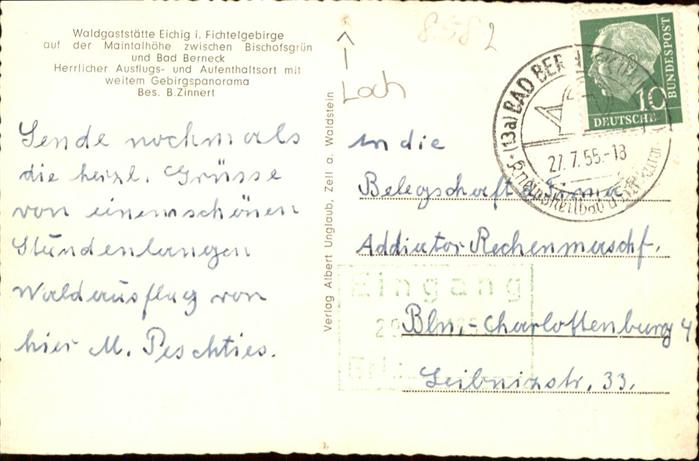 Waldgaststätte Eichig i. Fichtelgebirge
auf der Maintalhöhe zwischen Bischofsgrün
und Bad Berneck
Herrlicher Ausflugs- und Aufenthaltsort mit
weitem Gebirgspanorama
Bes. B. Zinnert
Sende nochmals
die herzl. Grüsse
von einem schönen
Stundenlangen
Waldausflug von
hier M. Peschties.
Verlag Albert Unglaub, Zell a. Waldstein
8582
Loch
10
DEUTSCHE
BUNDESPOST
(13a) BAD BER
27.7.55.-18
An die
Belegschaft d. Firma
Addiator Rechenmaschf.
Bln,-Charlottenburg 4
Leibnizstr. 33.
Eingang